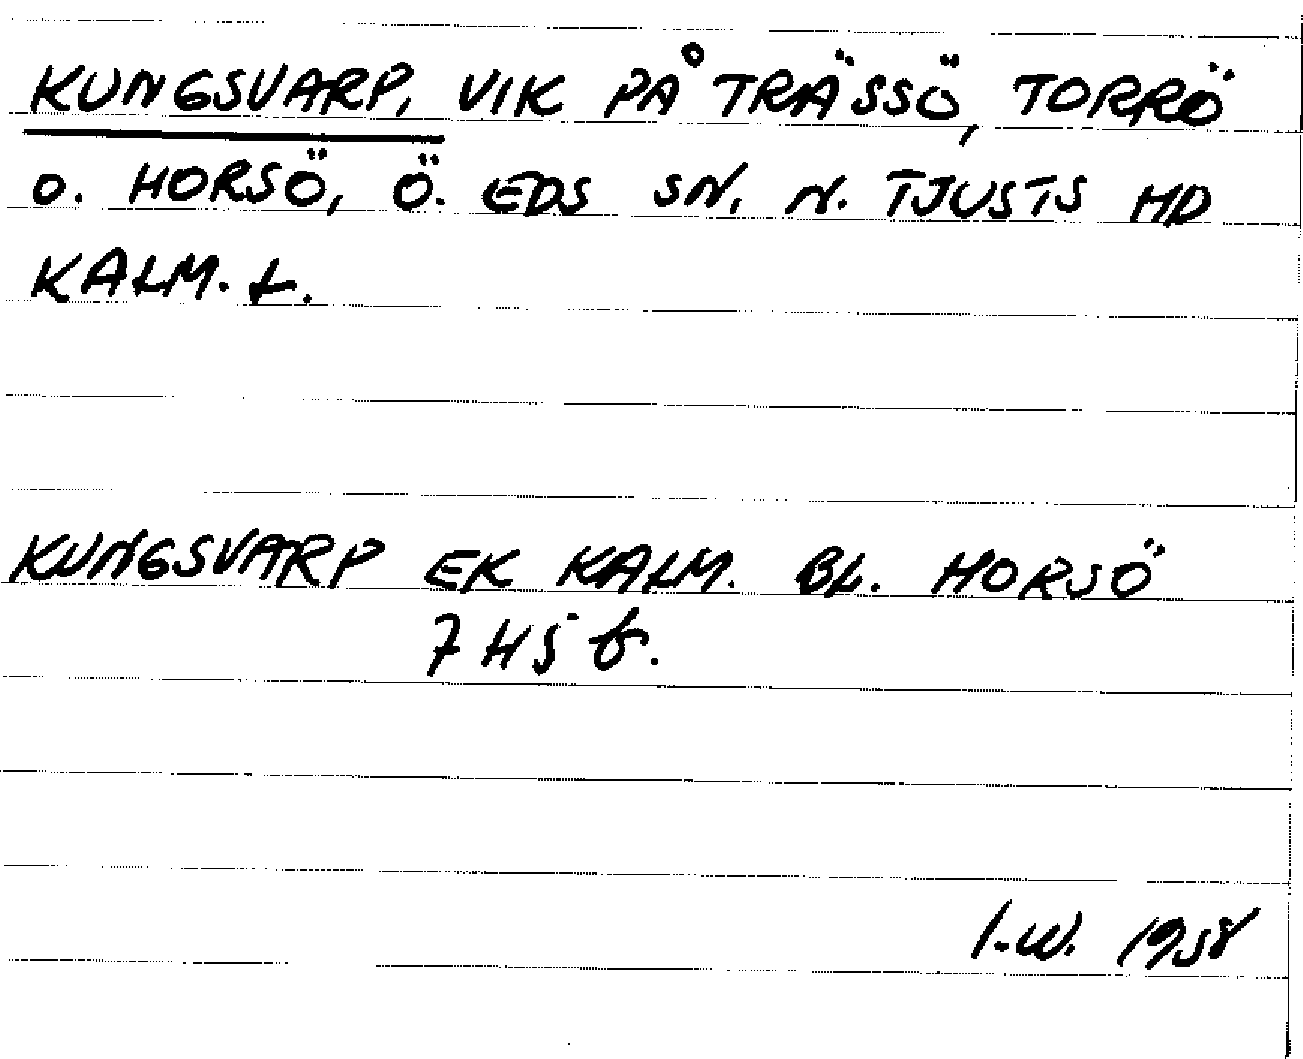 KUNGSVARP, VIK PÅ TRÄSSÖ, TORRÖ
O. HORSÖ, Ö. EDS SN, N. TJUSTS HD
KALM. L.
KUNGSVARP EK KALM. BL. HORSÖ
7H5b.
I.W. 1958